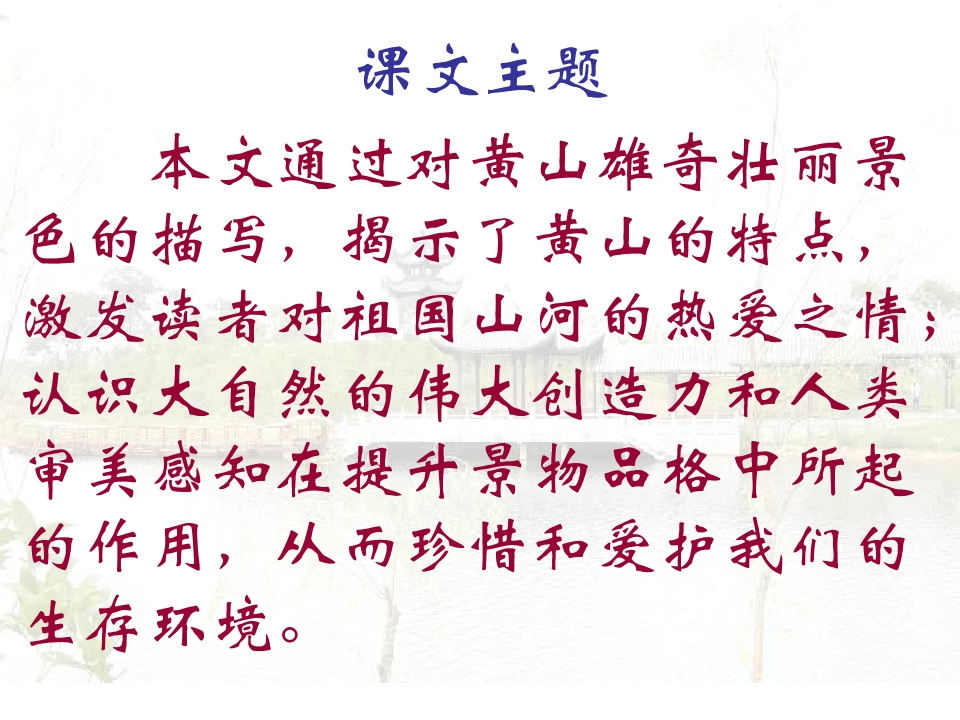 课文主题
本文通过对黄山雄奇壮丽景
色的描写，揭示了黄山的特点，
激发读者对祖国山河的热爱之情；
认识大自然的伟大创造力和人类
审美感知在提升景物品格中所起
的作用，从而珍惜和爱护我们的
生存环境。